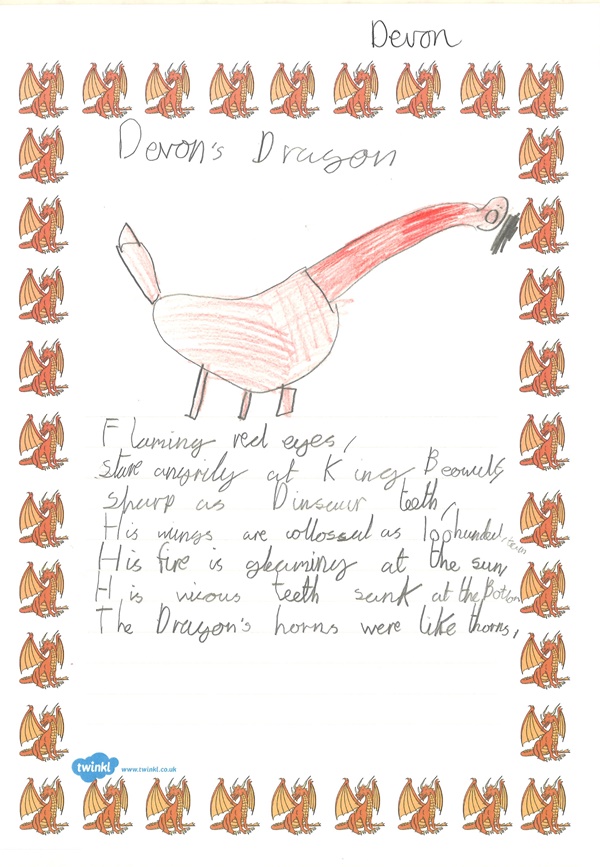 Devon
Devon's Dragon
Flaming red eyes,
stare angrily at King Beowulf,
sharp as Dinsaur teeth,
His wings are collossal as 100 hunded,
His fire is gleaming at the sun,
His vicous teeth sank at the Bottom
The Dragon's horns were like thorns,
twinkl www.twinkl.co.uk